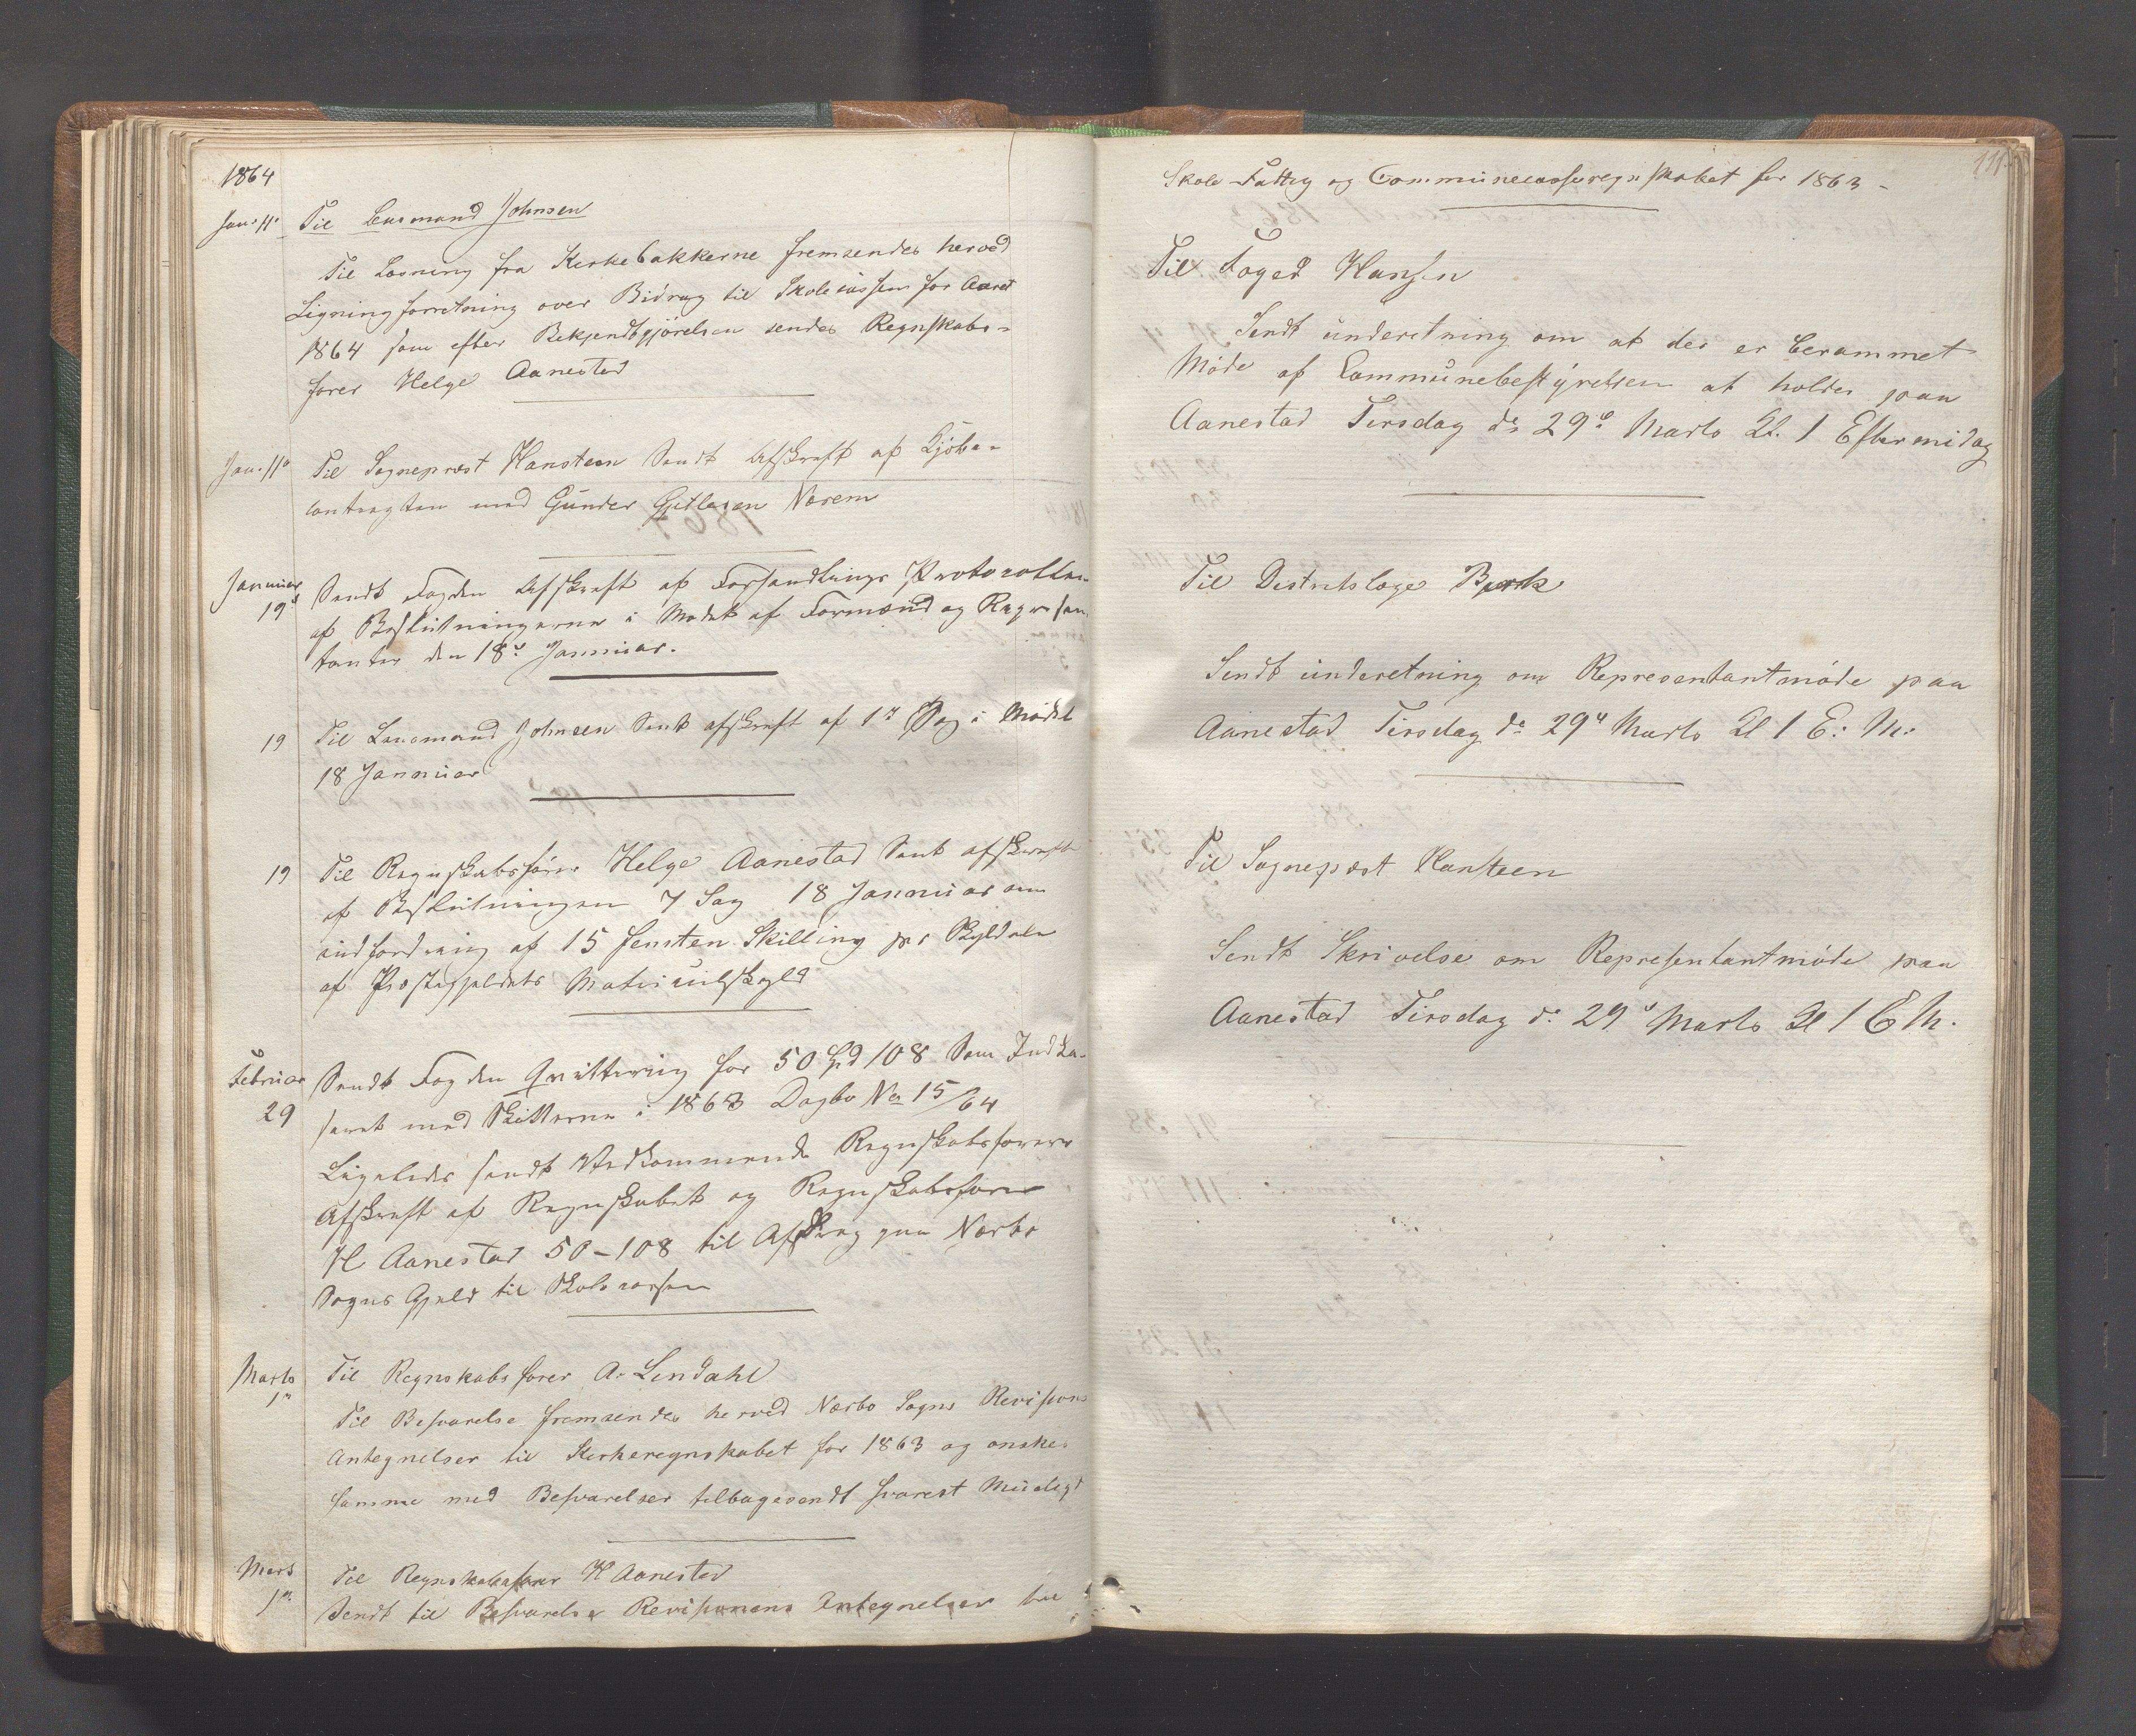 1864
Jan. 11. Til Lensmand Johnsen
Til Læsning fra Kirkebakkerne fremsendes herved
Ligningsforretning over Bidrag til Skolecassen for Aaret
1864 som efter Bekjendtgjörelsen sendes Regnskabs-
fører Helge Aanestad
Jan. 11. Til Sogneprest Hansteen Sendt Afskreft af Kjöbe-
contragten med Gunder Gitlesen Nærem
Januar Sendt Fogden Afskreft af Forhandlings Protocollen
19d af Beslutningerne i Mødet af Formænd og Represen-
tanter den 18d Januar.
19 Til Lensmand Johnsen Sent afskreft af 1ste Sag i Mödet
18 Januar
19 Til Regnskabsförer Helge Aanestad Sent afskreft
af Beslutningen 7 Sag 18 Januar om
indfordring af 15 femten Skilling pr Skylddaler
af Præstegjeldets Matriculskyld
Februar Sendt Fogden Quittering for 50 Spd 108 Som Indka-
29 seret med Skatterne i 1863 Dagbo No 15/64
Ligeledes sendt Vedkommende Regnskabsførere
Afskreft af Regnskabet og Regnskabsfører
H Aanestad 50-108 til Afdrag paa Nærbø
Sogns Gjeld til Skolecassen
Marts Til Regnskabsfører A. Lendahl
1ste Til Besvarelse fremsendes herved Nærbø Sogns Revisions
Antegnelser til Kirkeregnskabet for 1863 og ønskes
samme med Besvarelser tilbagesendt snarest Mueligt
Mars Til Regnskabsfører H Aanestad
1ste Sendt til Besvarelse Revisionens Antegnelser til
111.
Skole Fattig og Communecasseregnskabet for 1863 -
Til Foged Hansen
Sendt underetning om at der er berammet
Möde af Communebestyrelsen at holdes paa
Aanestad Tirsdag d. 29d Marts Kl. 1 Eftermidag
Til Destrektslæge Barck
Sendt underetning om Representantmöde paa
Aanestad Tirsdag d. 29d Marts Kl 1 E: M.
Til Sognepræst Hansteen
Sendt Skrivelse om Representantmöde paa
Aanestad Tirsdag d. 29d Marts Kl 1 E M.